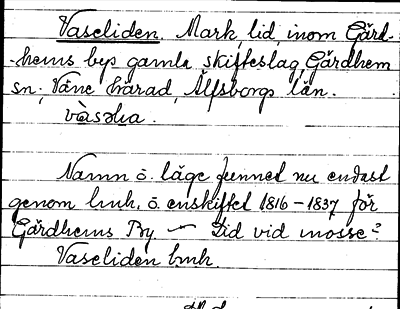 Vaseliden. Mark, lid, inom Gärd-
hems bys gamla skifteslag, Gärdhem
sn., Väne härad, Älfsborgs län.
vàsəlia.
Namn o. läge funnet nu endast
genom lmh. o. enskiftet 1816-1837 för
Gärdhems By. — Lid vid mosse?
Vaseliden lmh.